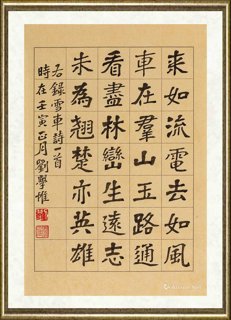 来如流電去如風
車在羣山玉路通
看盡林巒生遠志
未為翹楚亦英雄
右錄雪車詩一首
時在壬寅正月劉學惟